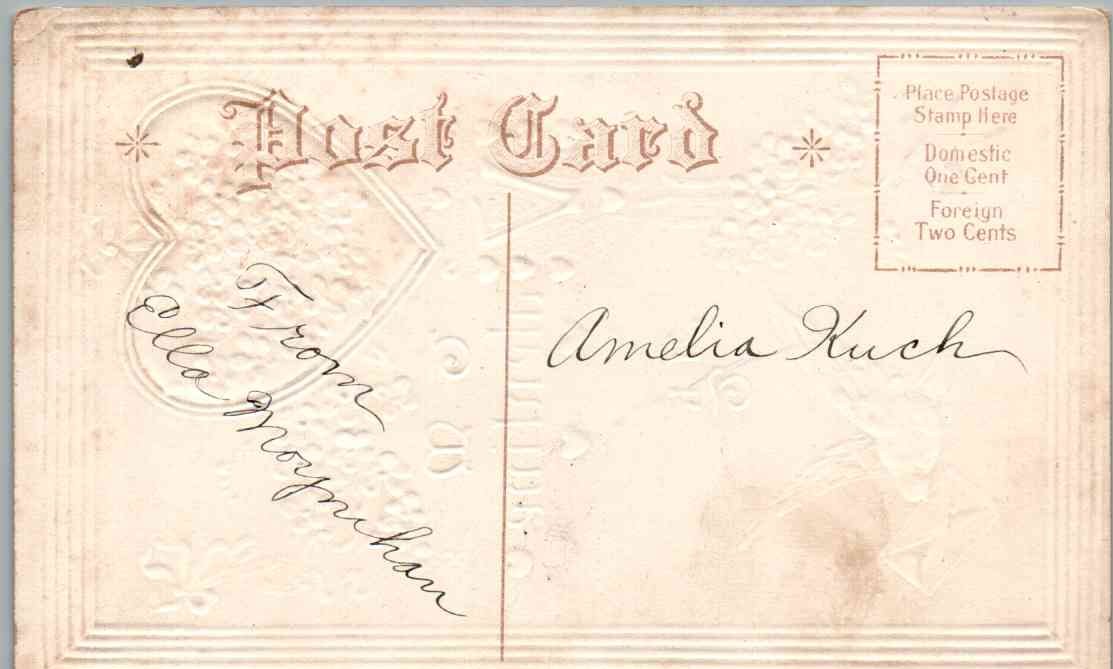 Post Card
Place Postage
Stamp Here
Domestic
One Cent
Foreign
Two Cents
From
Ella Moynihan
Amelia Kuch